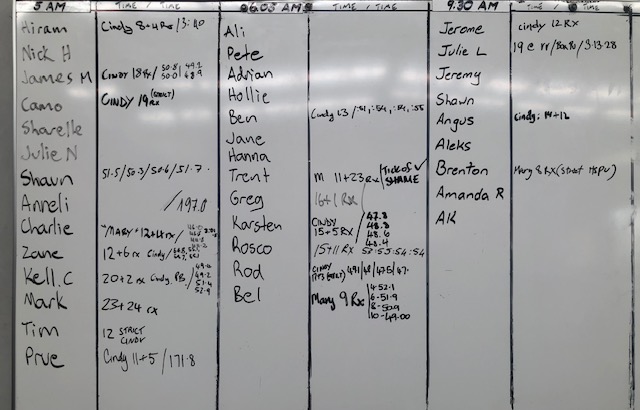 5 AM TIME / TIME
Hiram Cindy 8+4 Rx/3:40
Nick H
James M CINDY 18 Rx/ 50.8 49.2
50.0 48.9
Camo CINDY 19 (STRICT) Rx
Sharelle
Julie N
Shawn 51.5/50.3/50.6/51.7
Anneli /197.0
Charlie "MARY" +12+4 rx/
Zane 12+6 rx Cindy/
Kell.C 20+2 rx Cindy. PB/ 49.0
49.2
51.4
52.9
Mark 23+24 rx
Tim 12 STRICT
CINDY
Prue Cindy 11+5/171.8
6.03 AM TIME / TIME
Ali
Pete
Adrian
Hollie
Ben Cindy 13/:51,:54,:54,:55
Jane
Hanna
Trent M 11+23 Rx/ Tick of ✓
SHAME
Greg 16+1 Rx
Karsten CINDY
15+5 RX 47.8
48.8
48.6
48.4
Rosco 15+11 Rx 52:55:54:54
Rod CINDY
Bel Mary 9 Rx 4-52.1
6-51.9
8-50.9
10-49.00
9:30 AM TIME / TIME
Jerome cindy 12 Rx
Julie L
Jeremy
Shawn
Angus Cindy: 14+12
Aleks
Brenton Mary 8 RX (Strict HSPU)
Amanda R
AK